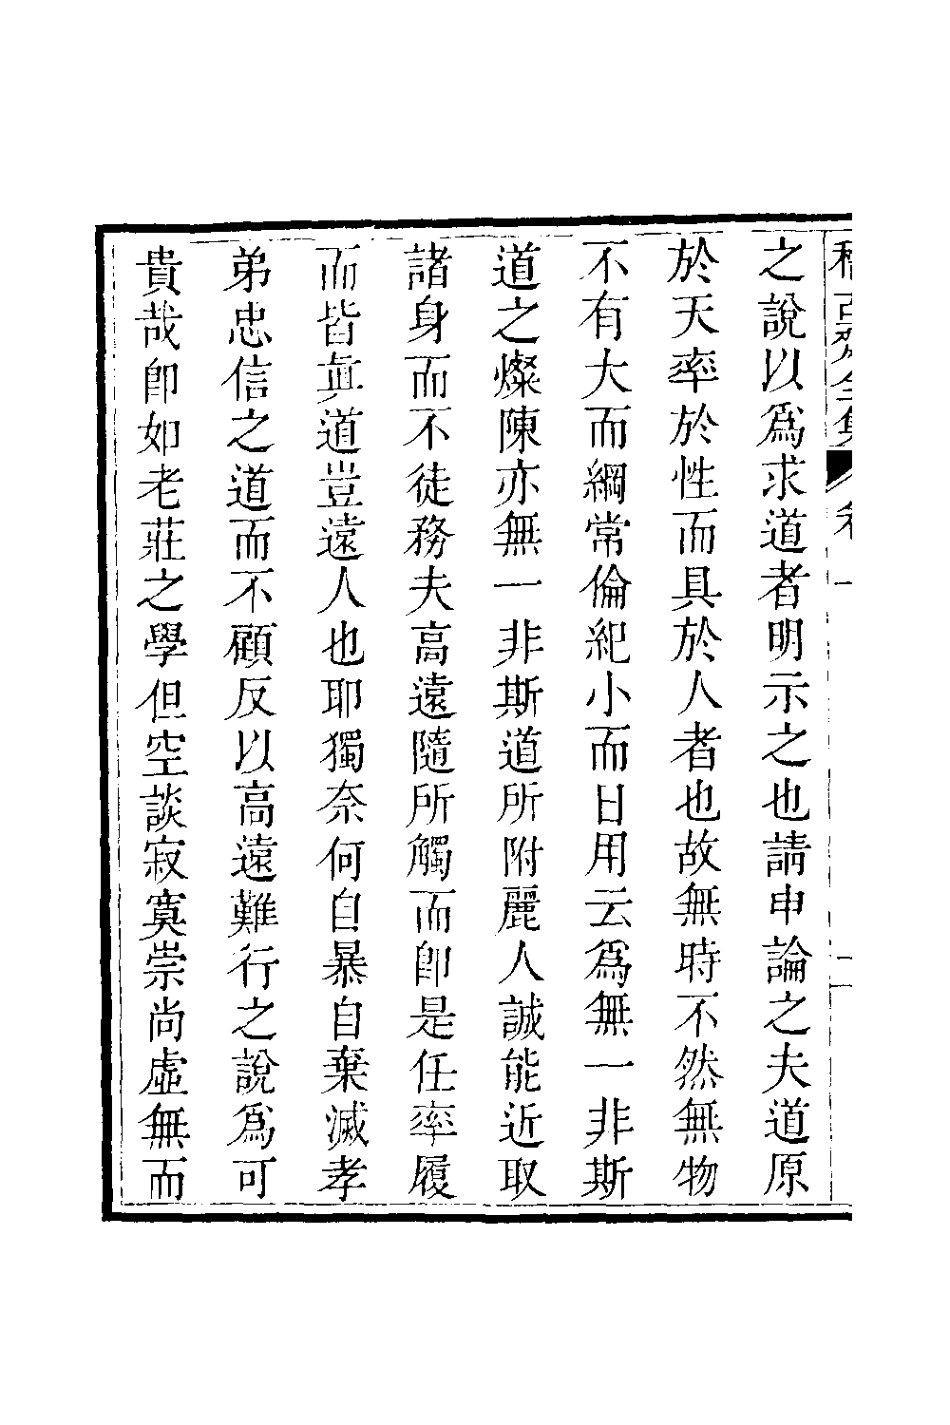 之說以爲求道者明示之也請申論之夫道原
於天率於性而具於人者也故無時不然無物
不有大而綱常倫紀小而日用云爲無一非斯
道之燦陳亦無一非斯道所附麗人誠能近取
諸身而不徒務夫高遠隨所觸而卽是任率履
而皆眞道豈遠人也耶獨奈何自暴自棄滅孝
弟忠信之道而不顧反以高遠難行之說爲可
貴哉卽如老莊之學但空談寂寞崇尚虛無而